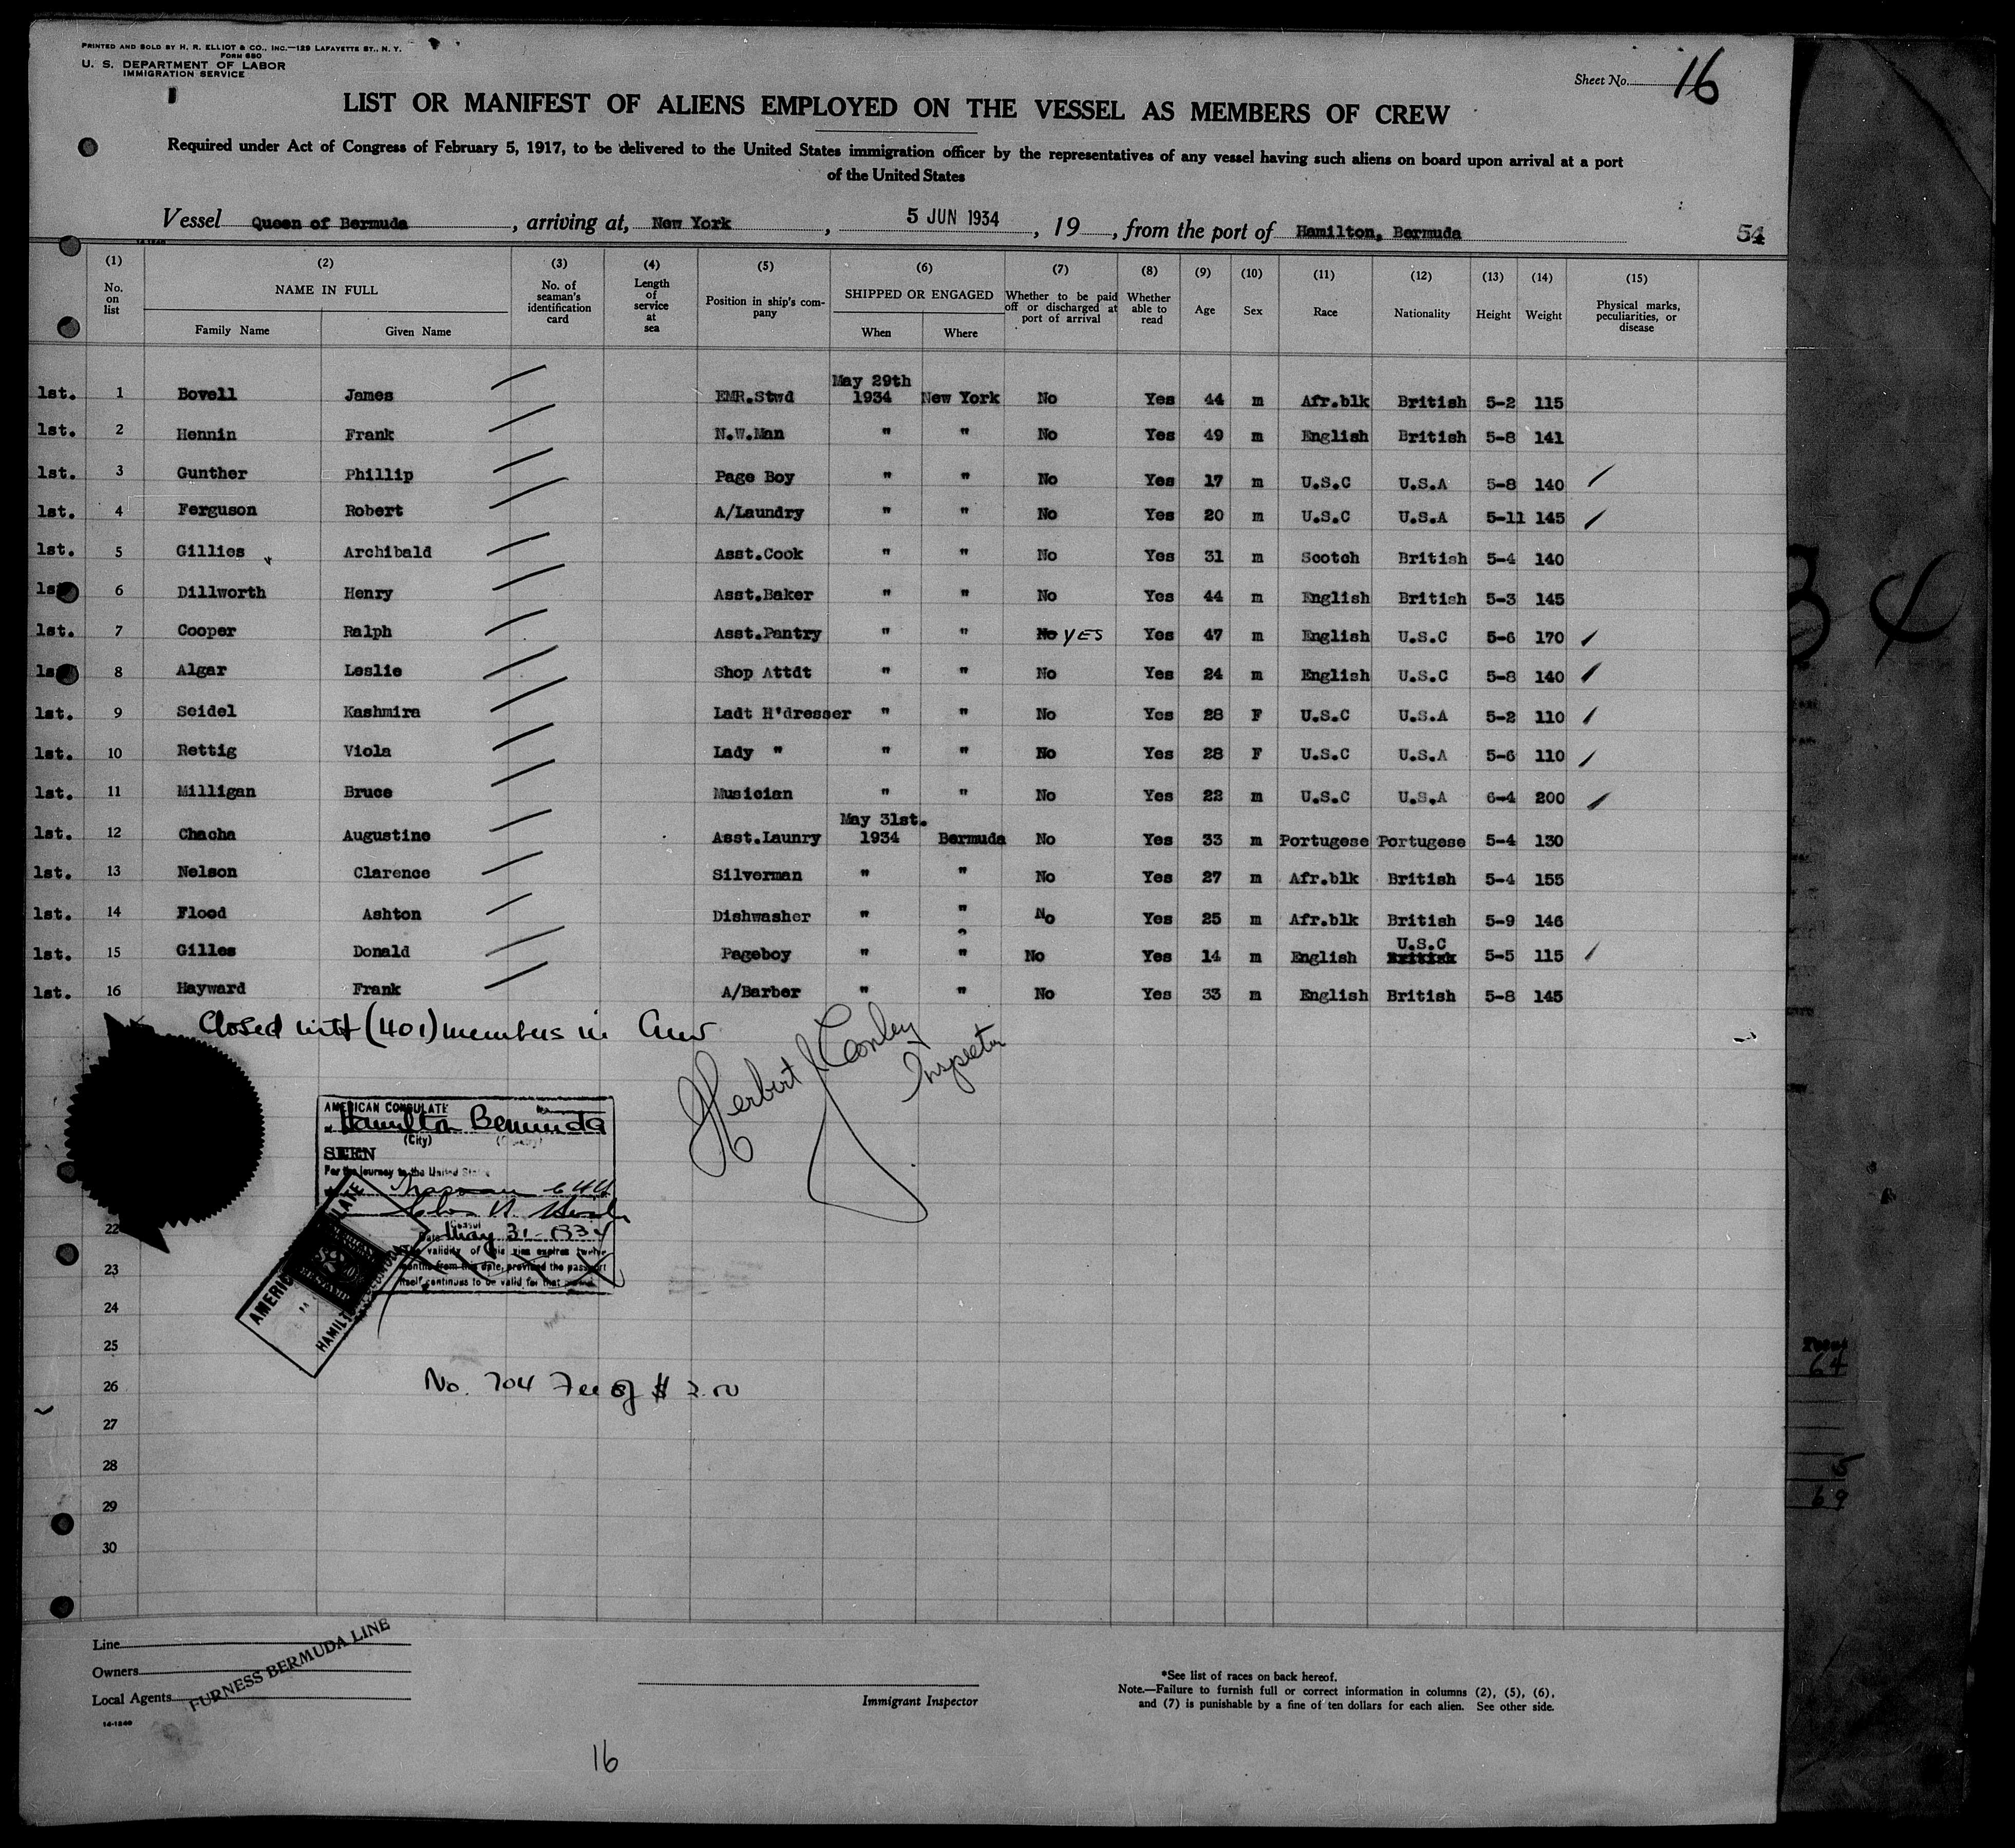 PRINTED AND SOLD BY H. R. ELLIOT & CO., INC.—129 LAFAYETTE ST., N. Y.
FORM 680
U. S. DEPARTMENT OF LABOR
IMMIGRATION SERVICE
Sheet No. 16
LIST OR MANIFEST OF ALIENS EMPLOYED ON THE VESSEL AS MEMBERS OF CREW
Required under Act of Congress of February 5, 1917, to be delivered to the United States immigration officer by the representatives of any vessel having such aliens on board upon arrival at a port
of the United States
Vessel Queen of Bermuda, arriving at, New York, 5 JUN 1934, 19, from the port of Hamilton, Bermuda 54
14-1240
(1) (2) (3) (4) (5) (6) (7) (8) (9) (10) (11) (12) (13) (14) (15)
No. on list NAME IN FULL Family Name Given Name No. of seaman's identification card Length of service at sea Position in ship's company SHIPPED OR ENGAGED When Where Whether to be paid off or discharged at port of arrival Whether able to read Age Sex Race Nationality Height Weight Physical marks, peculiarities, or disease
1st. 1 Bovell James EMR.Stwd May 29th 1934 New York No Yes 44 m Afr.blk British 5-2 115
1st. 2 Hennin Frank N.W.Man " " No Yes 49 m English British 5-8 141
1st. 3 Gunther Phillip Page Boy " " No Yes 17 m U.S.C U.S.A 5-8 140
1st. 4 Ferguson Robert A/Laundry " " No Yes 20 m U.S.C U.S.A 5-11 145
1st. 5 Gillies Archibald Asst.Cook " " No Yes 31 m Scotch British 5-4 140
1s 6 Dillworth Henry Asst.Baker " " No Yes 44 m English British 5-3 145
1st. 7 Cooper Ralph Asst.Pantry " " No YES Yes 47 m English U.S.C 5-6 170
1s 8 Algar Leslie Shop Attdt " " No Yes 24 m English U.S.C 5-8 140
1st. 9 Seidel Kashmira Ladt H'dresser " " No Yes 28 F U.S.C U.S.A 5-2 110
1st. 10 Rettig Viola Lady " " " No Yes 28 F U.S.C U.S.A 5-6 110
1st. 11 Milligan Bruce Musician " " No Yes 22 m U.S.C U.S.A 6-4 200
1st. 12 Chacha Augustine Asst.Launry May 31st. 1934 Bermuda No Yes 33 m Portugese Portugese 5-4 130
1st. 13 Nelson Clarence Silverman " " No Yes 27 m Afr.blk British 5-4 155
1st. 14 Flood Ashton Dishwasher " " No Yes 25 m Afr.blk British 5-9 146
1st. 15 Gilles Donald Pageboy " " No Yes 14 m English U.S.C British 5-5 115
1st. 16 Hayward Frank A/Barber " " No Yes 33 m English British 5-8 145
Closed with (401) members in Crew
Herbert J Conley
Inspector
AMERICAN CONSULATE
Hamilton Bermuda
(City) (Country)
SEEN
For the journey to the United States
Consul
Date May 31-1934
The validity of this visa expires twelve
months from this date, provided the passport
itself continues to be valid for that period.
22
23
24
25
26
27
28
29
30
No. 704 Fee of $ 2.00
Line
Owners
Local Agents
FURNESS BERMUDA LINE
14-1240
Immigrant Inspector
*See list of races on back hereof.
Note.—Failure to furnish full or correct information in columns (2), (5), (6),
and (7) is punishable by a fine of ten dollars for each alien. See other side.
16
34
64
69